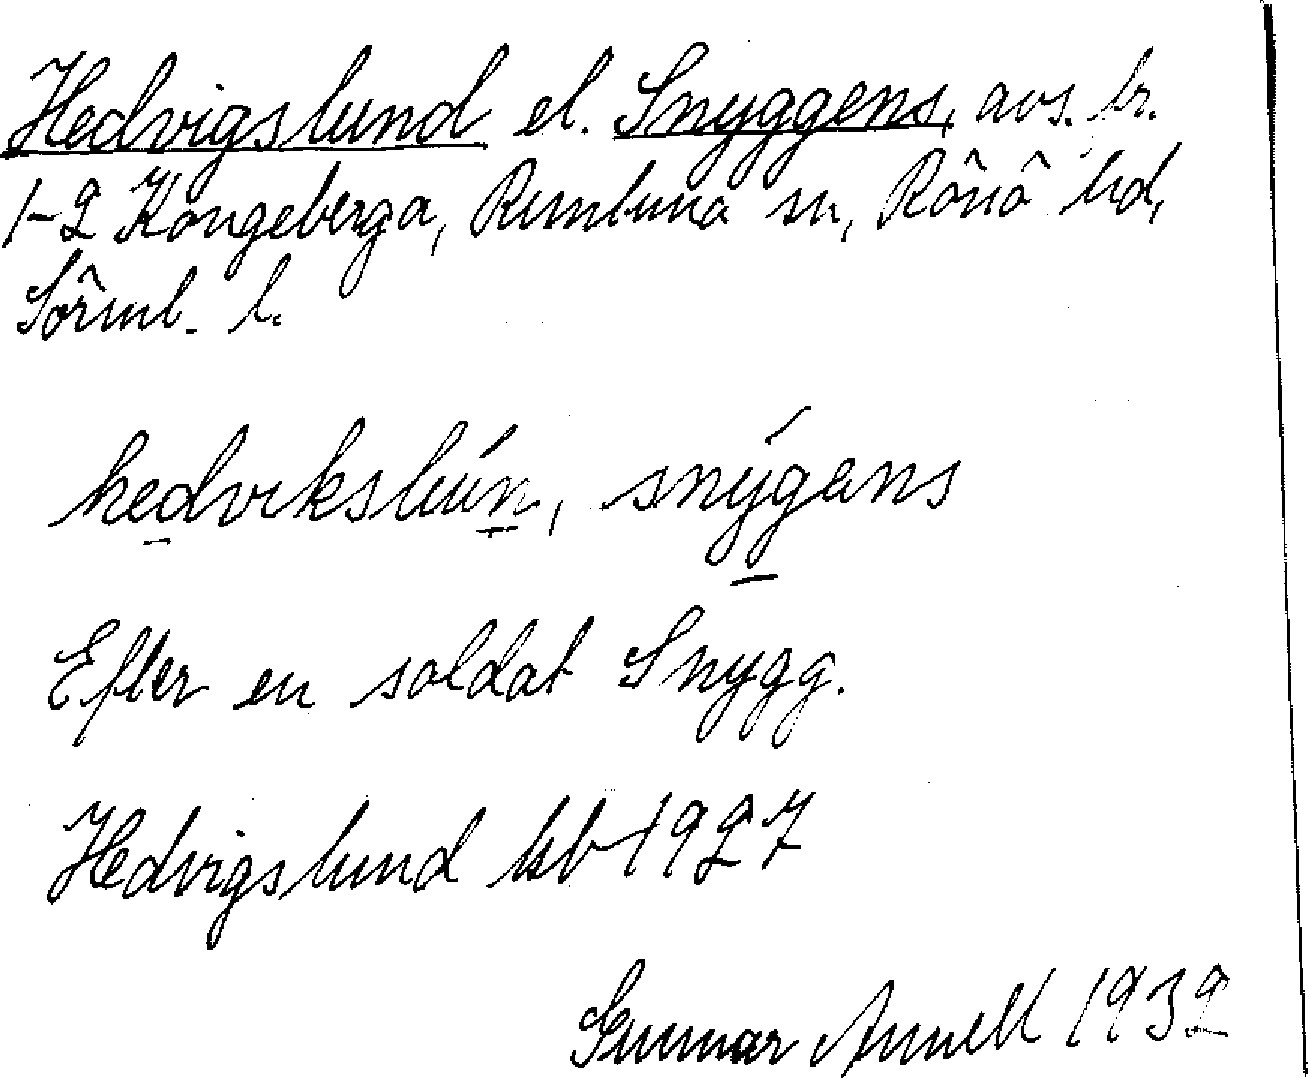 Hedvigslund el. Snyggens, avs. fr.
1-2 Kongeberga, Runtuna sn, Rönö hd,
Sörml. l.
hedvikslún, snýgens
Efter en soldat Snygg.
Hedvigslund kb 1927
Gunnar Annell 1932